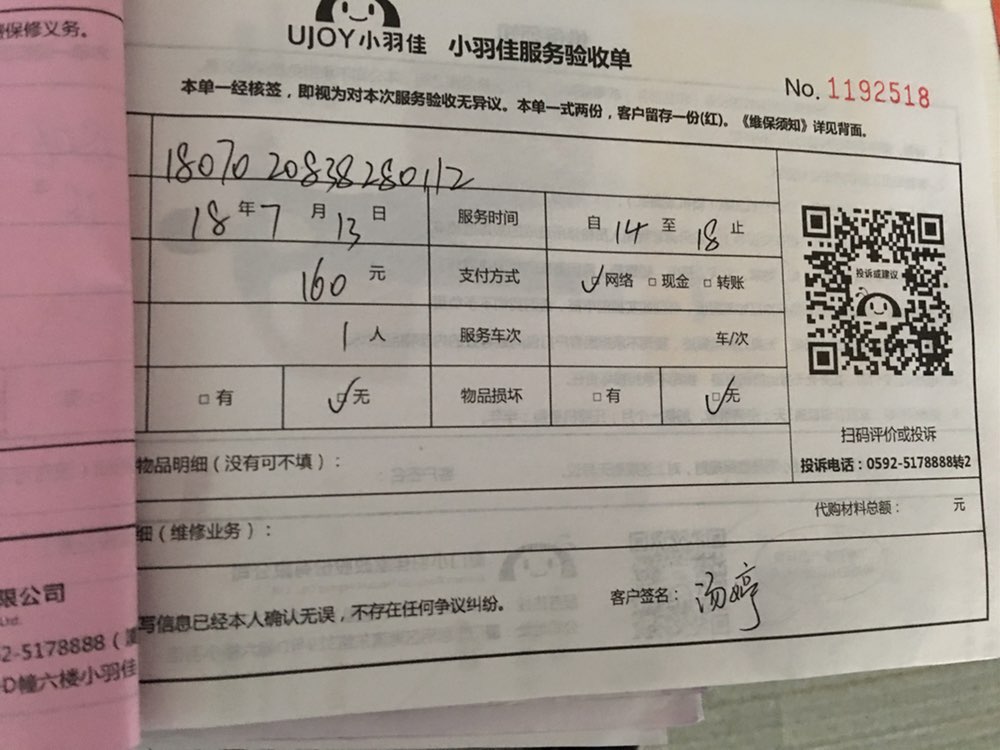 保修义务。
UJOY小羽佳 小羽佳服务验收单
No. 1192518
本单一经核签，即视为对本次服务验收无异议。本单一式两份，客户留存一份(红)。《维保须知》详见背面。
1807020838280112
18年7月13日 服务时间 自14至18止
160元 支付方式 ☑网络 □现金 □转账
投诉或建议
1人 服务车次 车/次
□有 ☑无 物品损坏 □有 ☑无
扫码评价或投诉
物品明细（没有可不填）：
投诉电话：0592-5178888转2
代购材料总额： 元
细（维修业务）：
客户签名：汤婷
写信息已经本人确认无误，不存在任何争议纠纷。
限公司
Ltd.
2-5178888
D幢六楼小羽佳